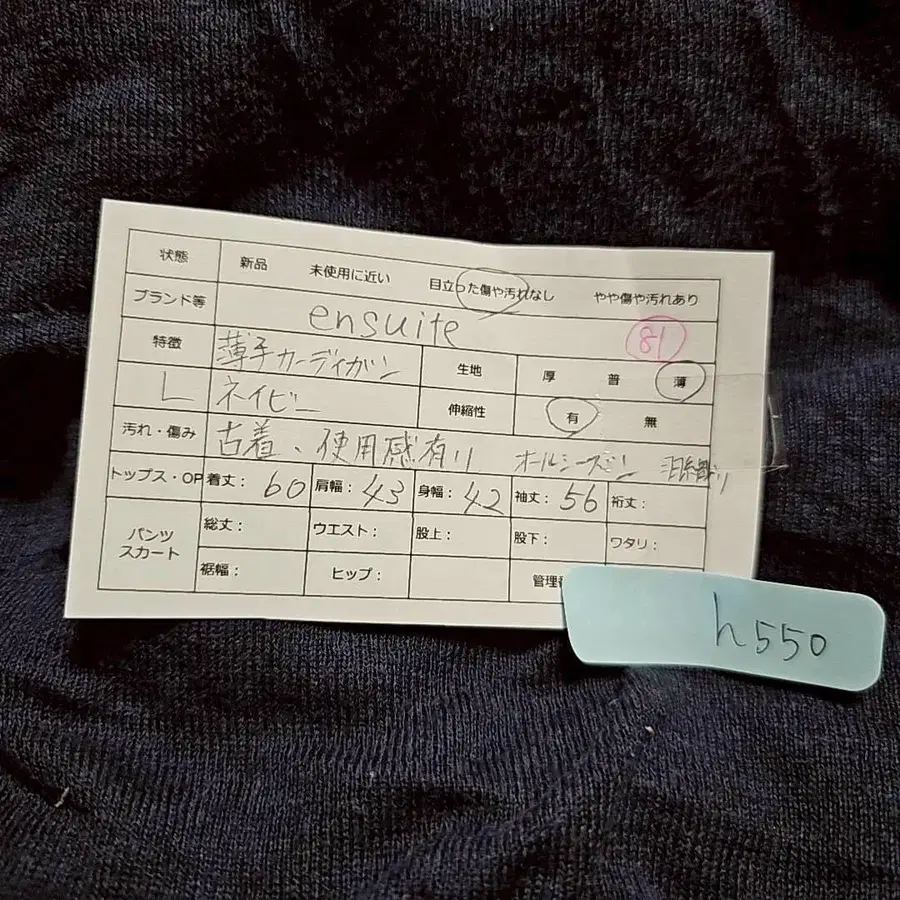 状態 新品 未使用に近い 目立った傷や汚れなし やや傷や汚れあり
ブランド等 ensuite 81
特徴 薄手カーディガン 生地 厚 普 薄
L ネイビー 伸縮性 有 無
汚れ・傷み 古着、使用感有り オールシーズン
トップス・OP 着丈: 60 肩幅: 43 身幅: 42 袖丈: 56 裄丈:
パンツ
スカート
総丈: ウエスト: 股上: 股下: ワタリ:
裾幅: ヒップ: 管理
h550